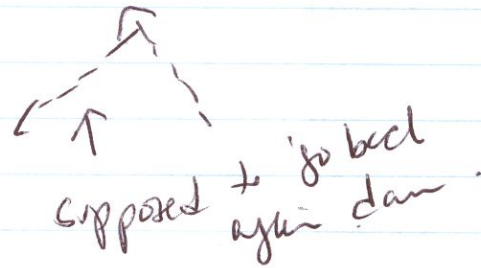 supposed to go back
again down.